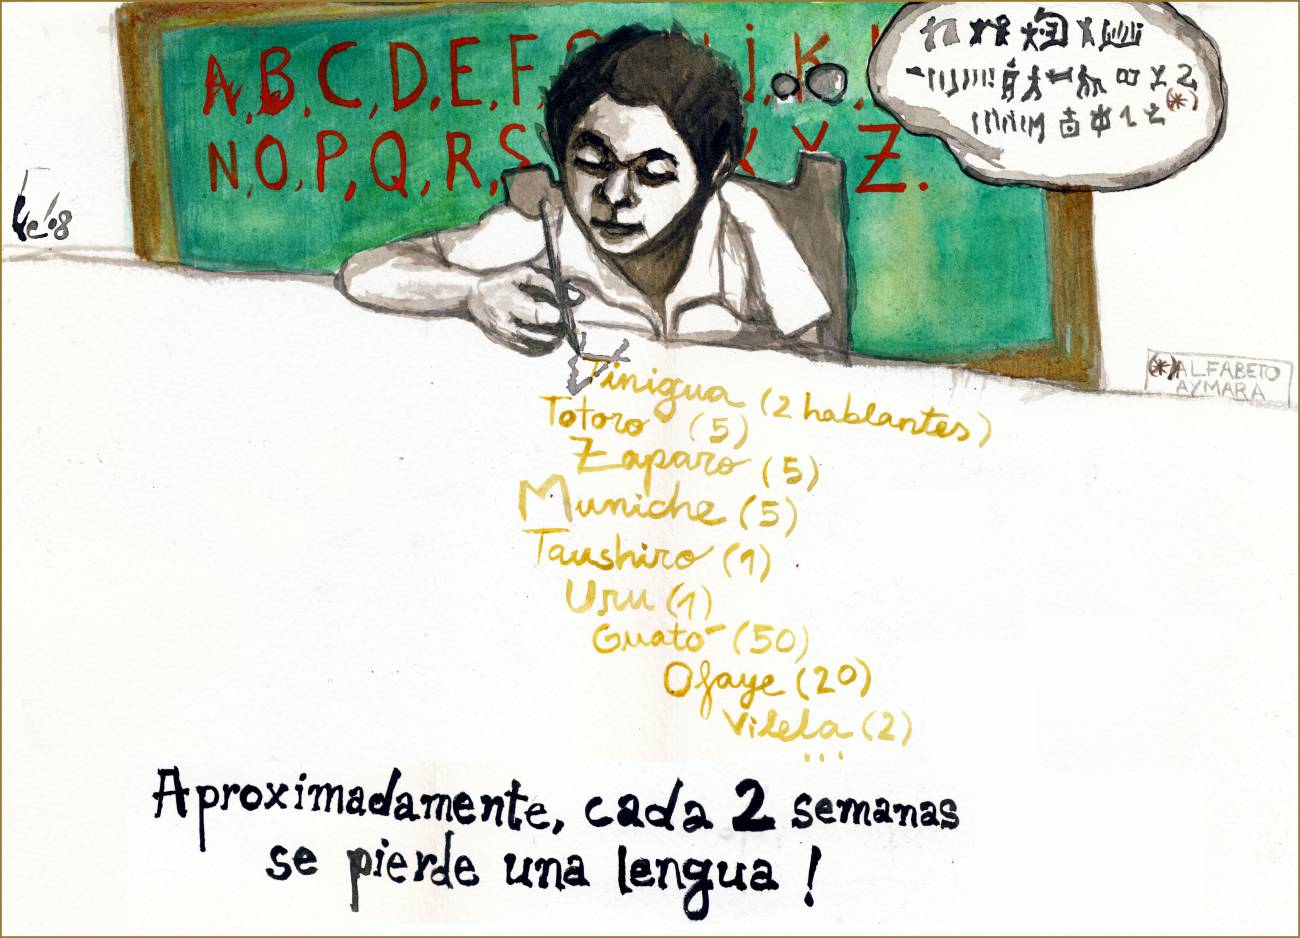 A, B, C, D, E, F,
N, O, P, Q, R, S
Y Z.
(*)
(*) ALFABETO
AYMARA
Tinigua (2 hablantes)
Totoro (5)
Zaparo (5)
Muniche (5)
Taushiro (1)
Uru (1)
Guató (50)
Ofaye (20)
Vilela (2)
...
Aproximadamente, cada 2 semanas
se pierde una lengua!